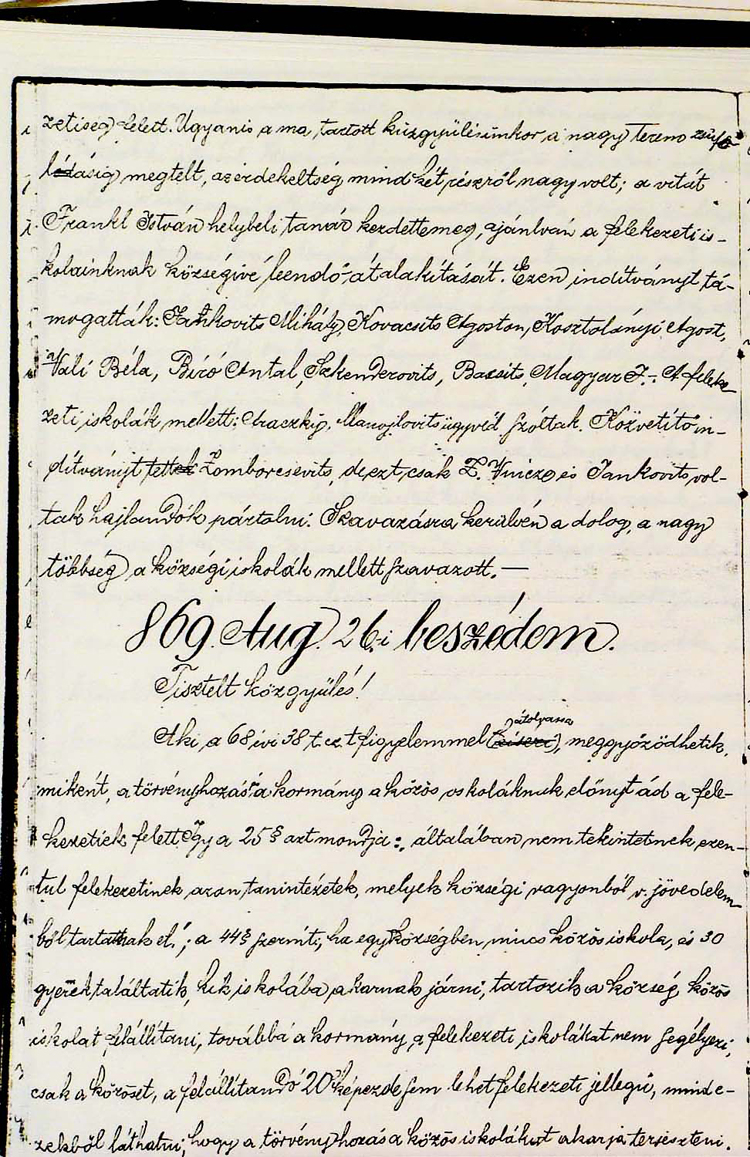 zetiség felett. Ugyanis a ma tartott küzgyülésünkor a nagy Terem zsúfo
lódásig megtelt, az érdekeltség mind két részről nagy volt; a vitát
Frankl István helybeli tanár kezdette meg, ajánlván a felekezeti is-
koláinknak községivé leendő átalakítását. Ezen indítványt tá-
mogatták: Jankovits Mihály, Kovacsits Ágoston, Kosztolányi Ágost,
Váli Béla, Bíró Antal, Szkenderovits, Bacsits, Magyar I.- A feleke
zeti iskolák mellett: Manojlovits ügyvéd szóltak. Közvetítő in-
dítványt tettek Zomborcsevits, de ezt csak és Jankovits vol-
tak hajlandók pártolni. Szavazásra kerülvén a dolog, a nagy
többség a községi iskolák mellett szavazott.—
869. Aug. 26.i beszédem.
Tisztelt közgyülés!
Aki a 68 évi 38 t. cz.t figyelemmel (átolvassa), meggyőződhetik,
miként, a törvényhozás s a kormány a közös iskoláknak előnyt ád a fele-
kezetiek felett így a 25 § azt mondja: általában nem tekintetnek ezen-
tul felekezetinek azon tanintézetek, melyek községi vagyonból v. jövedelem
ből tartatnak el."; a 44 § szerint, ha egy községben nincs közös iskola, és 30
gyerek találtatik, kik iskolába akarnak járni, tartozik a község közös
iskolát felállítani, továbbá a kormány a felekezeti iskolákat nem segélyezi,
csak a közöset, a felállítandó 20 képezde sem lehet felekezeti jellegü, minde-
zekből láthatni, hogy a törvényhozás a közös iskolákat akarja terjeszteni.